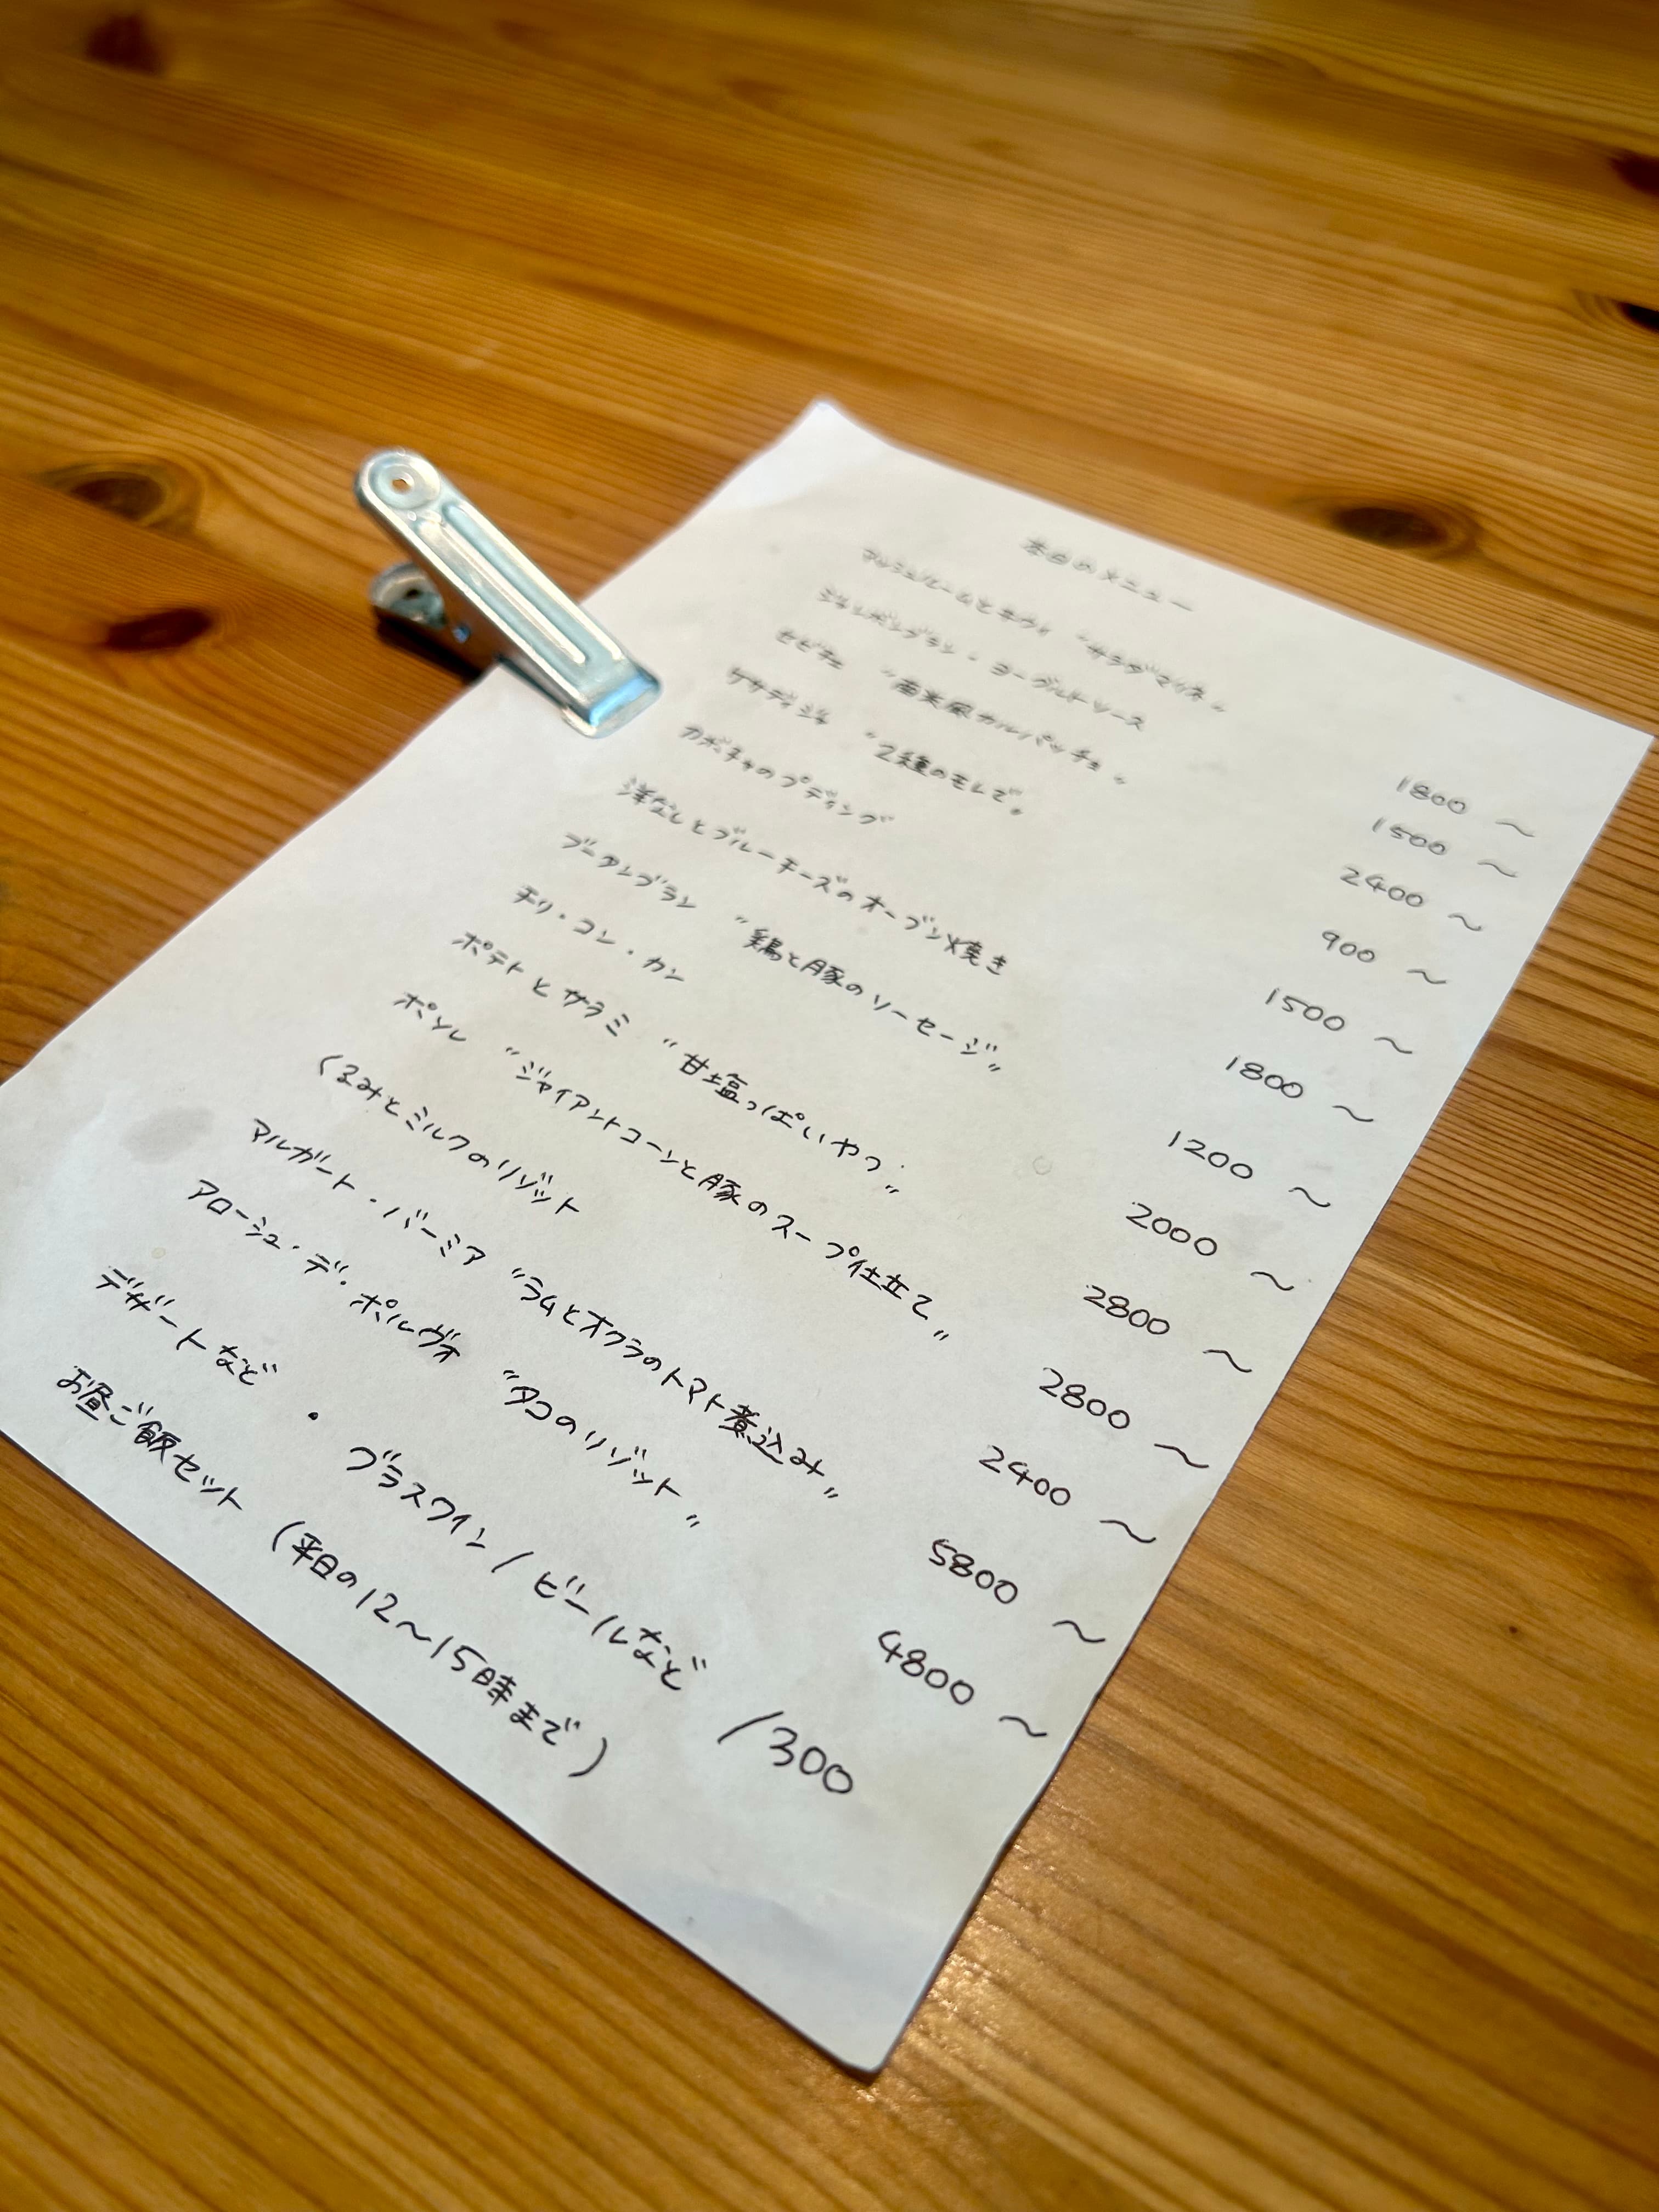 本日のメニュー
マッシュルームとキウイ "サラダマリネ" 1800 〜
ジャンボンブラン・ヨーグルトソース 1500 〜
セビチェ "南米風カルパッチョ" 2400 〜
ケサディジャ "2種のモレで" 900 〜
カボチャのプディング 1500 〜
洋なしとブルーチーズのオーブン焼き 1800 〜
ブータンブラン "鶏と豚のソーセージ" 1200 〜
チリ・コン・カン 2000 〜
ポテトとサラミ "甘塩っぱいやつ" 2800 〜
ポソレ "ジャイアントコーンと豚のスープ仕立て" 2800 〜
くるみとミルクのリゾット 2400 〜
マルガート・バーミア "ラムとオクラのトマト煮込み" 5800 〜
アローシュ・デ・ポルヴォ "タコのリゾット" 4800 〜
デザートなど ・ グラスワイン/ビールなど
お昼ご飯セット (平日の12〜15時まで) /300